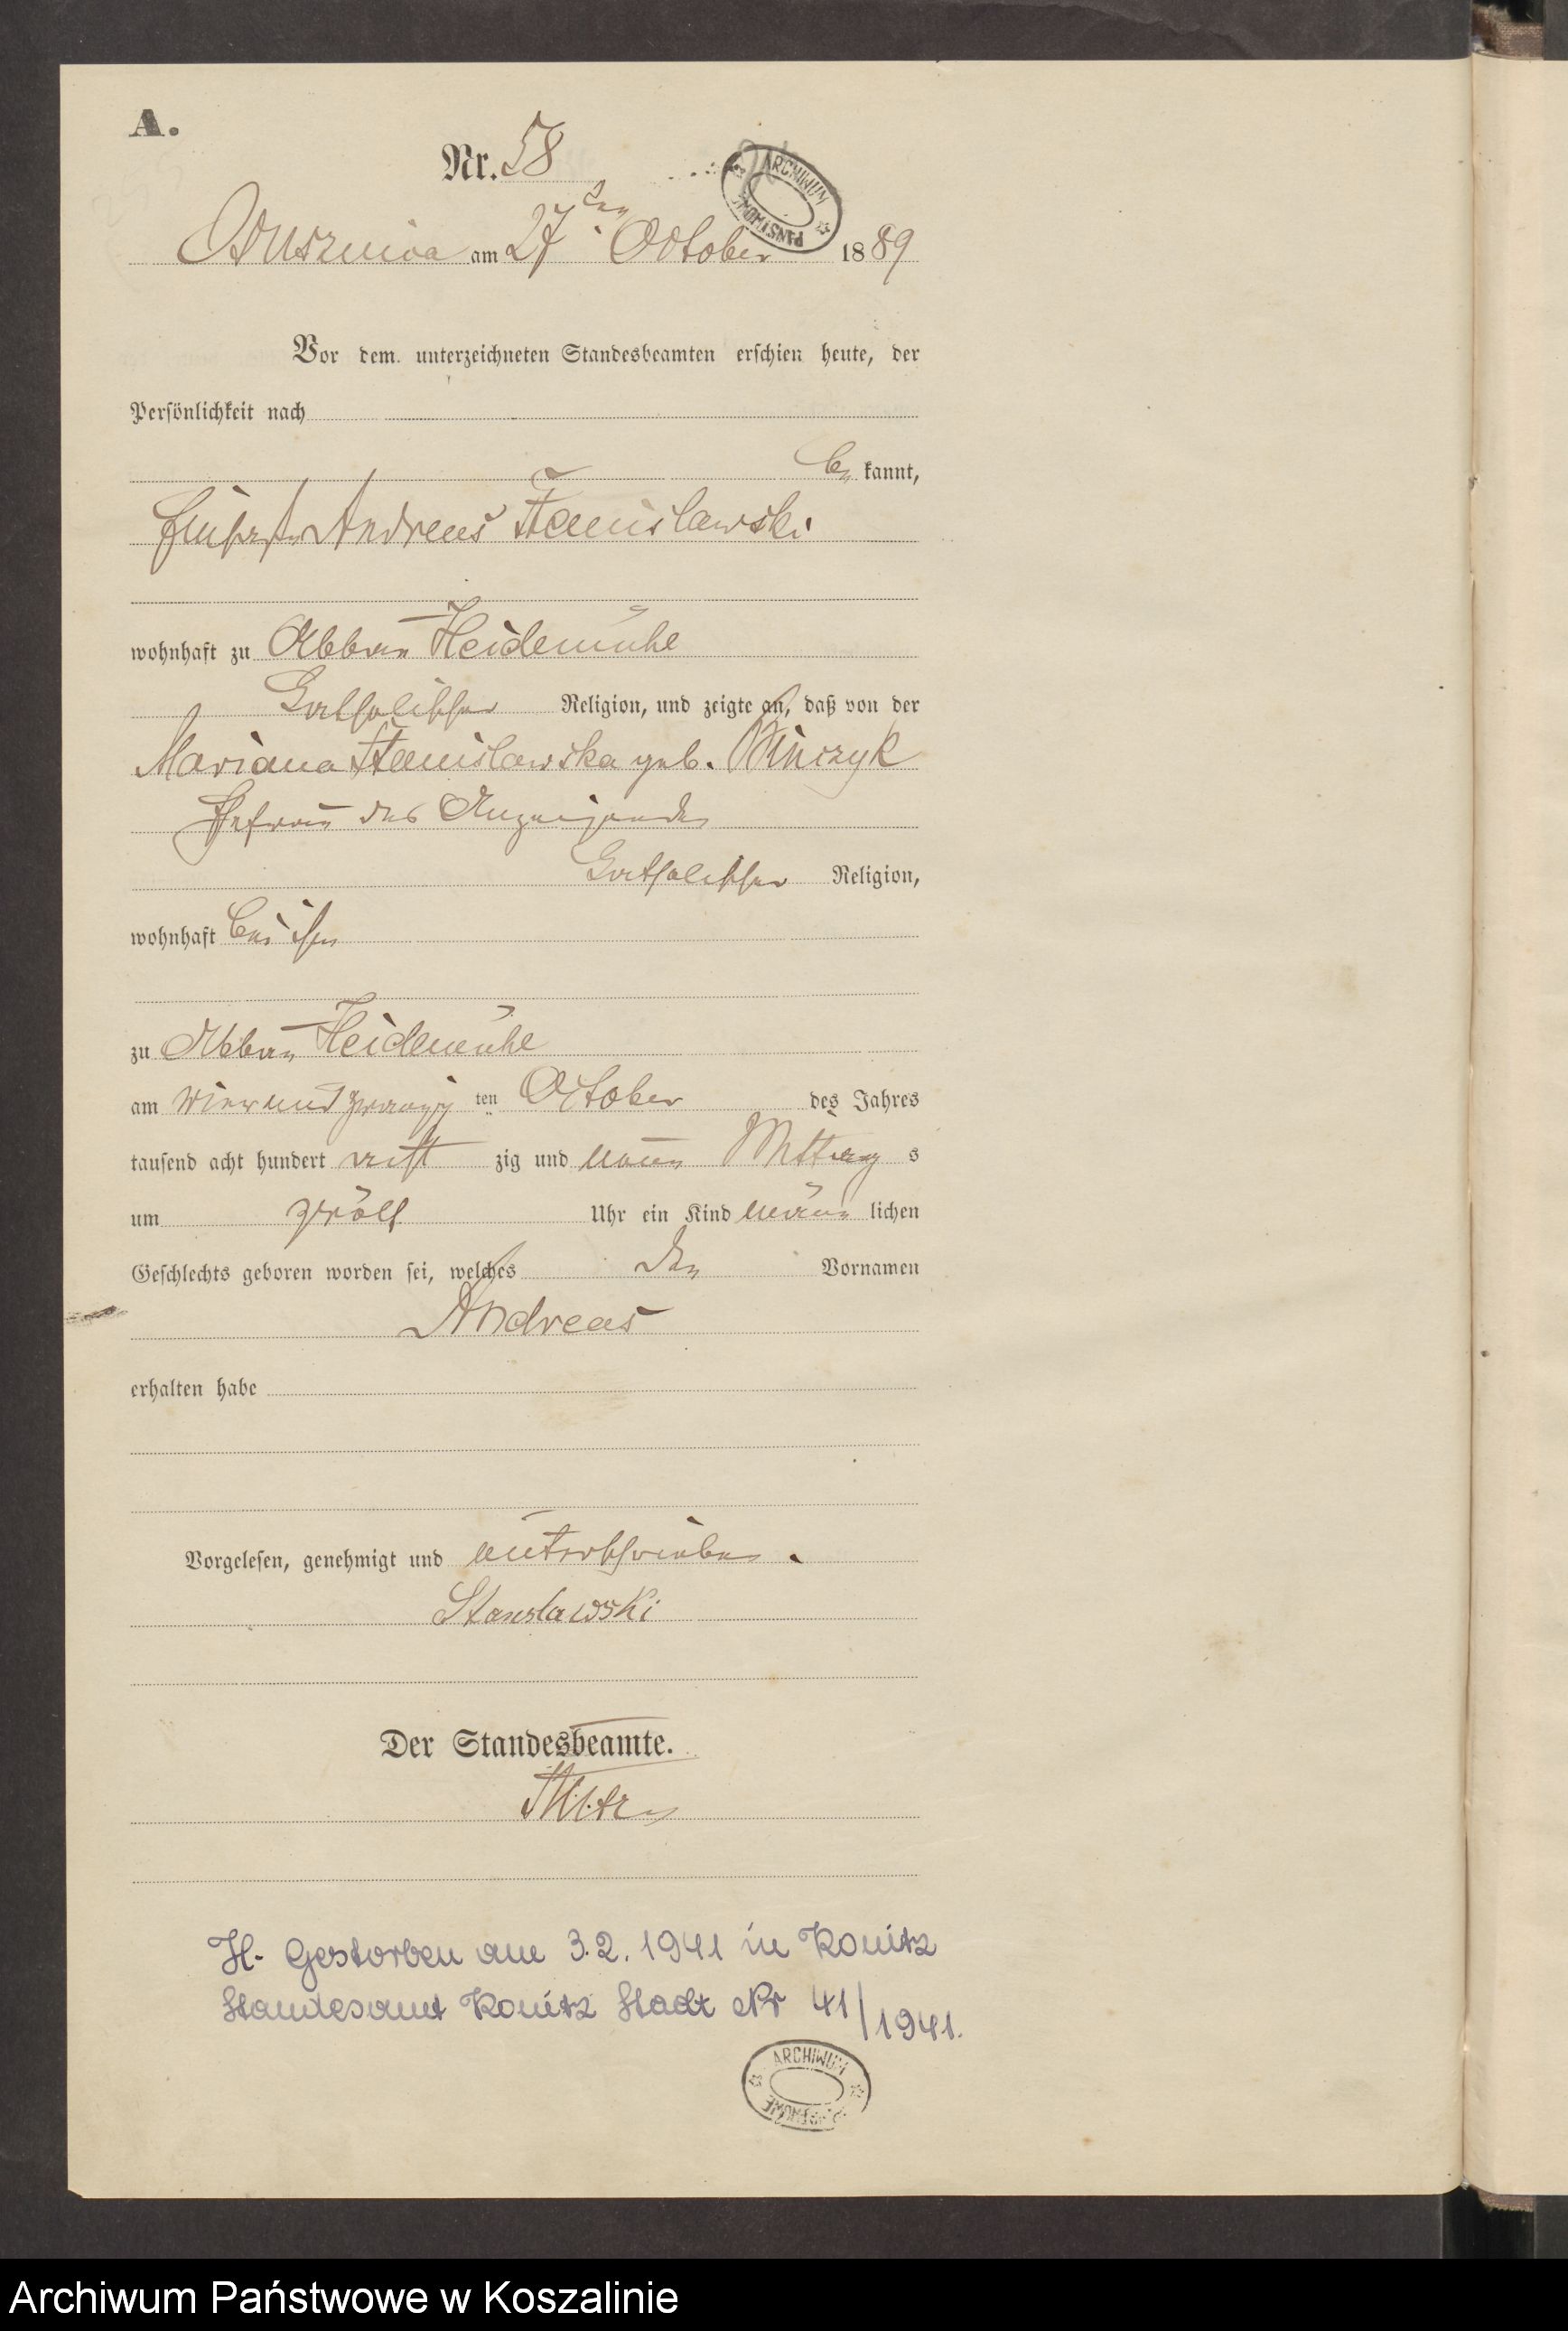 A.
Nr. 58
ARCHIWUM PAŃSTWOWE
am 27ten October 1889
Vor dem unterzeichneten Standesbeamten erschien heute, der
Persönlichkeit nach
be kannt,
Andreas Stanislawski
wohnhaft zu Abbau Heidemühl
katholischer Religion, und zeigte an, daß von der
Mariana Stanislawska geb. Winczyk
Ehefrau des Anzeigenden
katholischer Religion,
wohnhaft bei ihm
zu Abbau Heidemühl
am vierundzwanzig ten October des Jahres
tausend acht hundert acht zig und neun Mittag s
um zwölf Uhr ein Kind männ lichen
Geschlechts geboren worden sei, welches den Vornamen
Andreas
erhalten habe
Vorgelesen, genehmigt und unterschrieben.
Stanslawski
Der Standesbeamte.
H. Gestorben am 3.2.1941 in Konitz
Standesamt Konitz Stadt Nr 41/1941.
ARCHIWUM PAŃSTWOWE
Archiwum Państwowe w Koszalinie